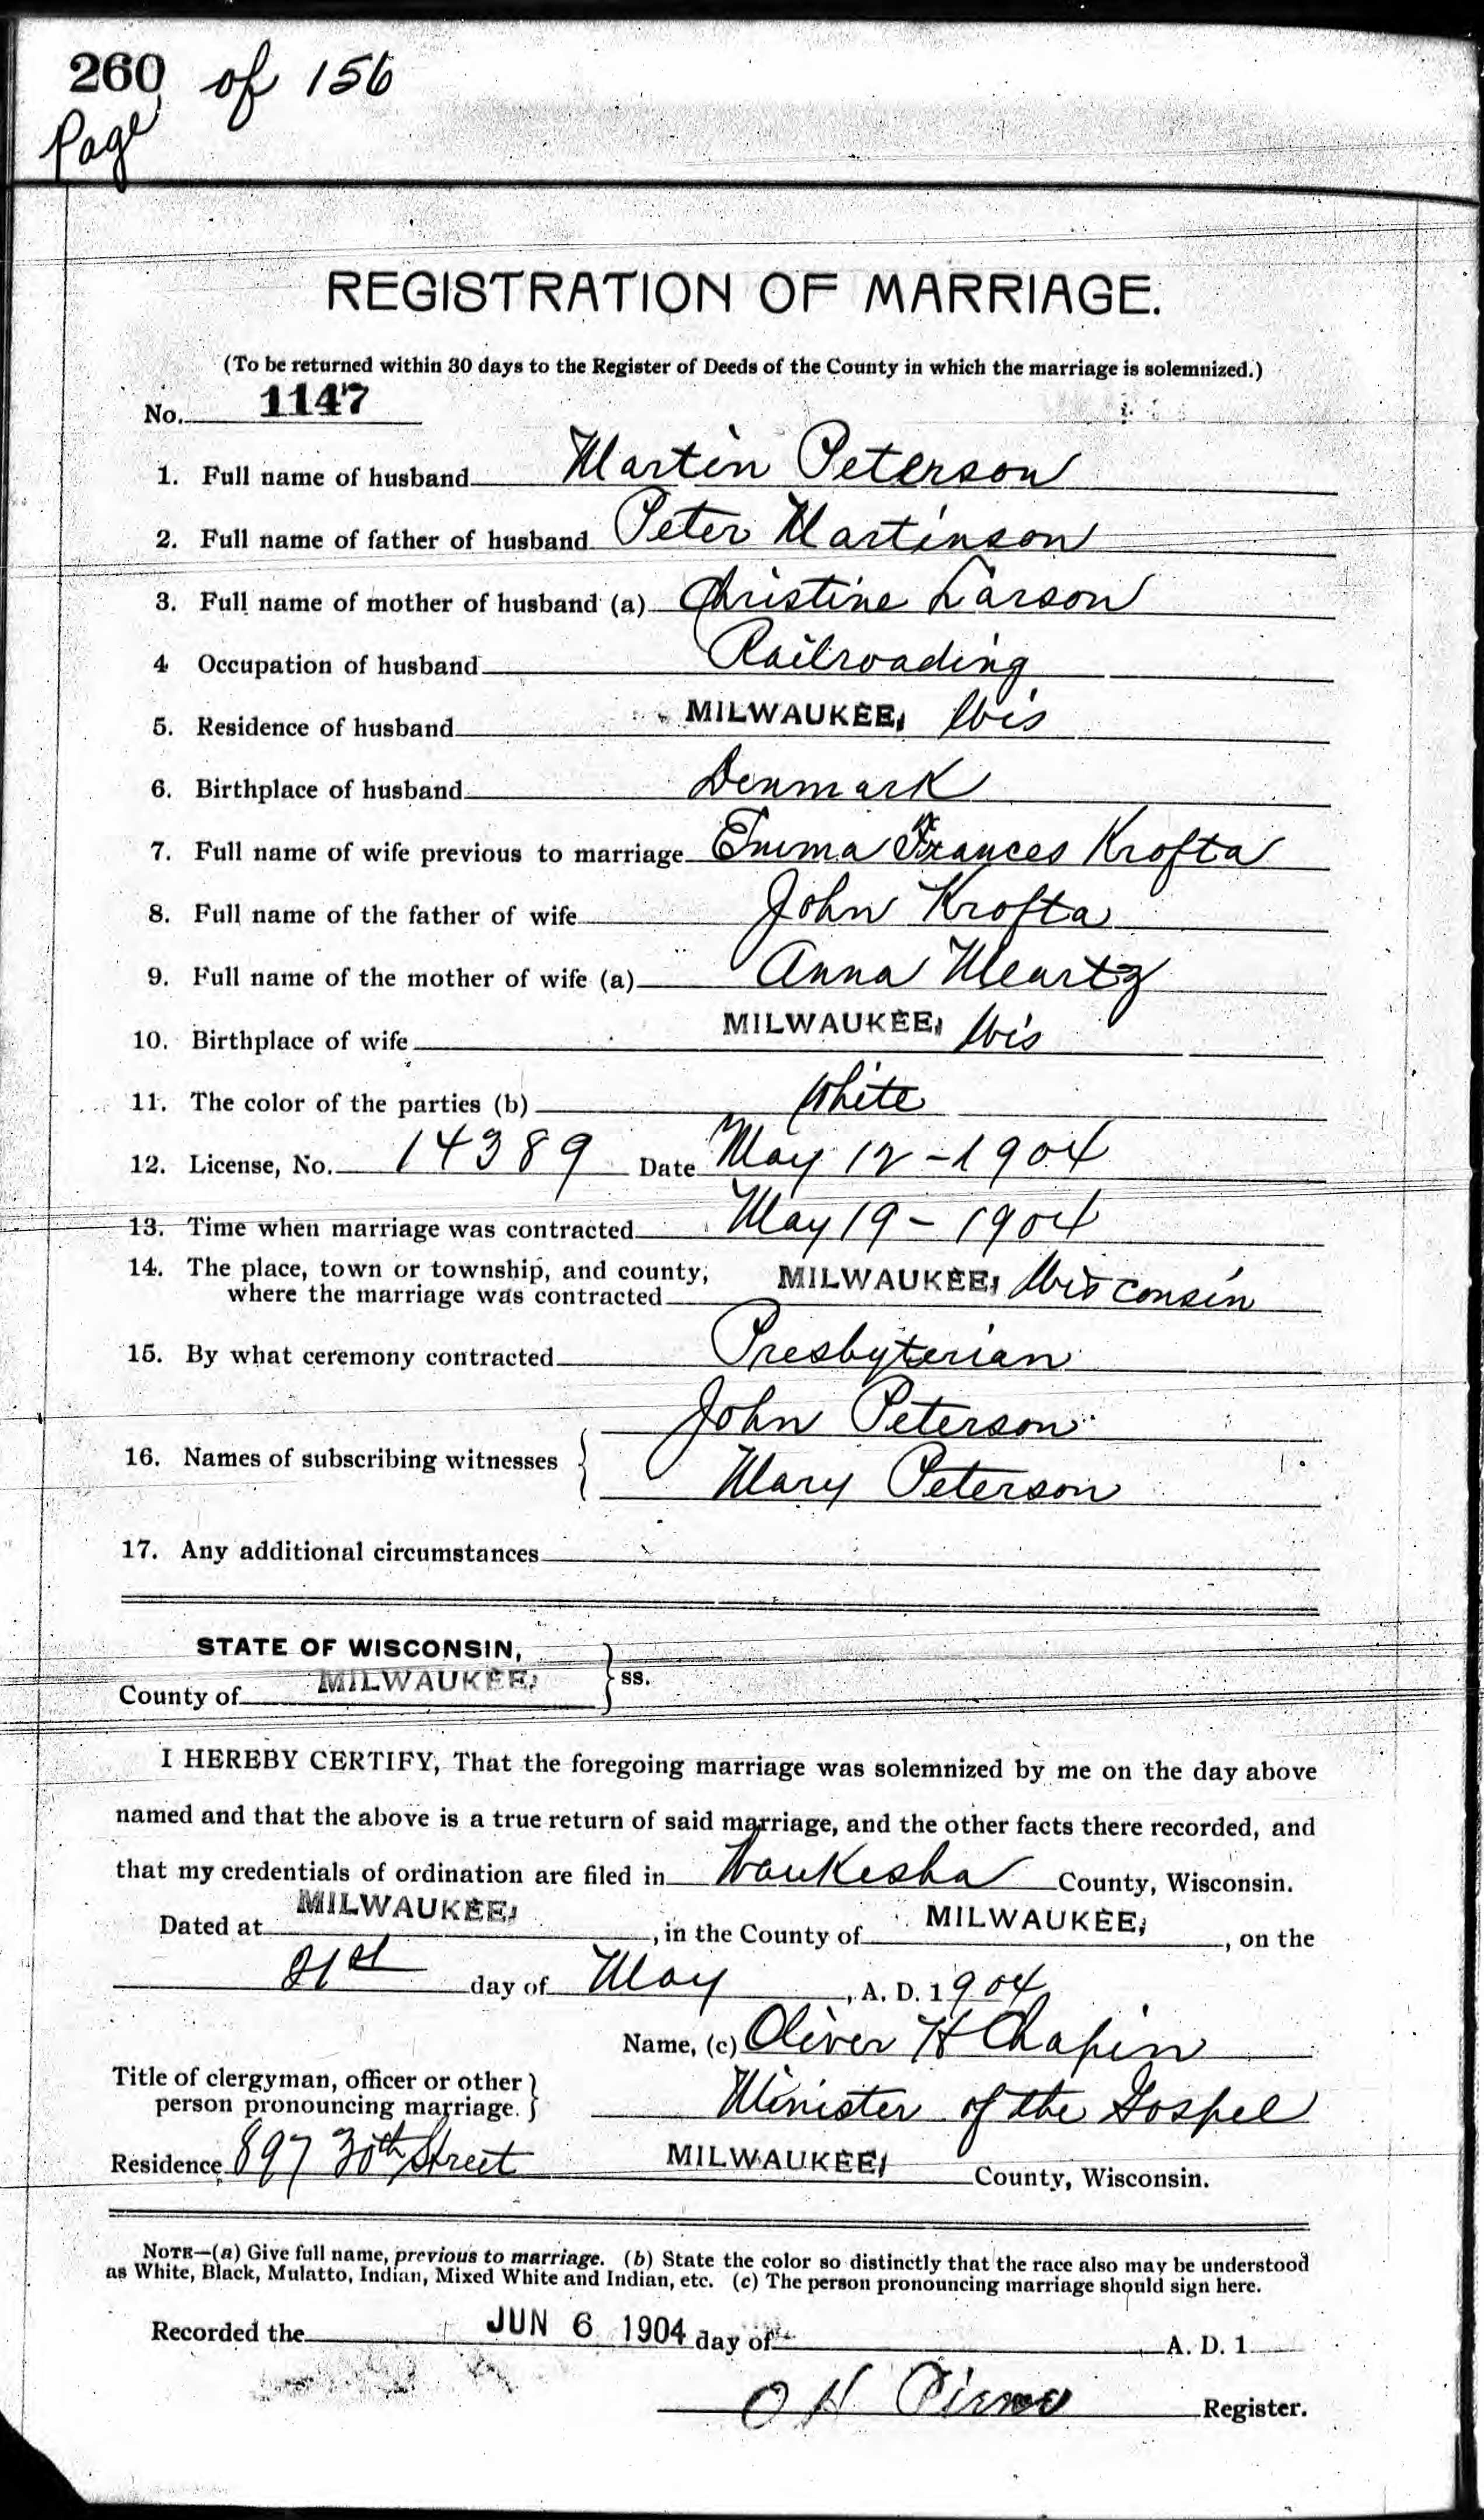 260 of 156
Page
REGISTRATION OF MARRIAGE.
(To be returned within 30 days to the Register of Deeds of the County in which the marriage is solemnized.)
No. 1147
1. Full name of husband Martin Peterson
2. Full name of father of husband Peter Martinson
3. Full name of mother of husband (a) Christine Larson
4 Occupation of husband Railroading
5. Residence of husband MILWAUKEE, Wis
6. Birthplace of husband Denmark
7. Full name of wife previous to marriage Emma Frances Krofta
8. Full name of the father of wife John Krofta
9. Full name of the mother of wife (a) Anna
10. Birthplace of wife MILWAUKEE, Wis
11. The color of the parties (b) White
12. License, No. 14389 Date May 12-1904
13. Time when marriage was contracted May 19-1904
14. The place, town or township, and county,
where the marriage was contracted MILWAUKEE, Wisconsin
15. By what ceremony contracted Presbyterian
John Peterson
16. Names of subscribing witnesses
Mary Peterson
17. Any additional circumstances
STATE OF WISCONSIN,
County of MILWAUKEE, ss.
I HEREBY CERTIFY, That the foregoing marriage was solemnized by me on the day above
named and that the above is a true return of said marriage, and the other facts there recorded, and
that my credentials of ordination are filed in Waukesha County, Wisconsin.
Dated at MILWAUKEE, , in the County of MILWAUKEE, , on the
21st day of May , A. D. 1904
Name, (c) Oliver H Chapin
Title of clergyman, officer or other
person pronouncing marriage. Minister of the Gospel
Residence 897 30th Street MILWAUKEE, County, Wisconsin.
NOTE—(a) Give full name, previous to marriage. (b) State the color so distinctly that the race also may be understood
as White, Black, Mulatto, Indian, Mixed White and Indian, etc. (c) The person pronouncing marriage should sign here.
Recorded the JUN 6 1904 day of A. D. 1
O H Register.